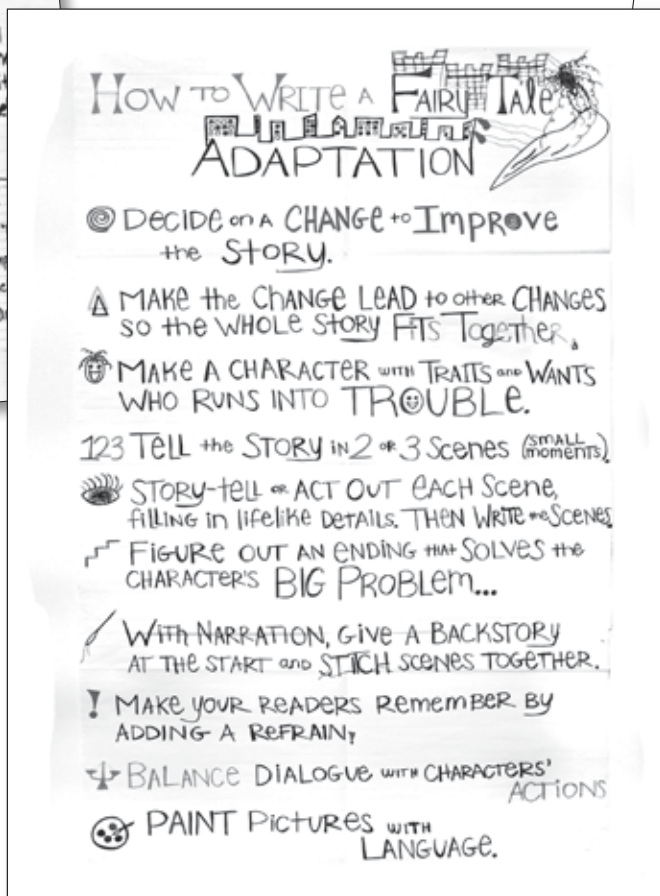 How to Write a Fairy Tale
Adaptation
Decide on a CHANGE to Improve
the Story.
Make the Change Lead to other Changes
so the Whole Story Fits Together.
Make a Character with Traits and Wants
Who Runs into TROUBLE.
123 Tell the Story in 2 or 3 Scenes (small moments)
Story-tell or Act Out Each Scene,
filling in lifelike Details. Then Write the Scenes
Figure Out an Ending that Solves the
Character's BIG Problem...
With Narration, Give a Backstory
at the Start and Stitch Scenes Together.
! Make your Readers Remember by
Adding a Refrain,
Balance Dialogue with Characters'
Actions
Paint Pictures with
Language.